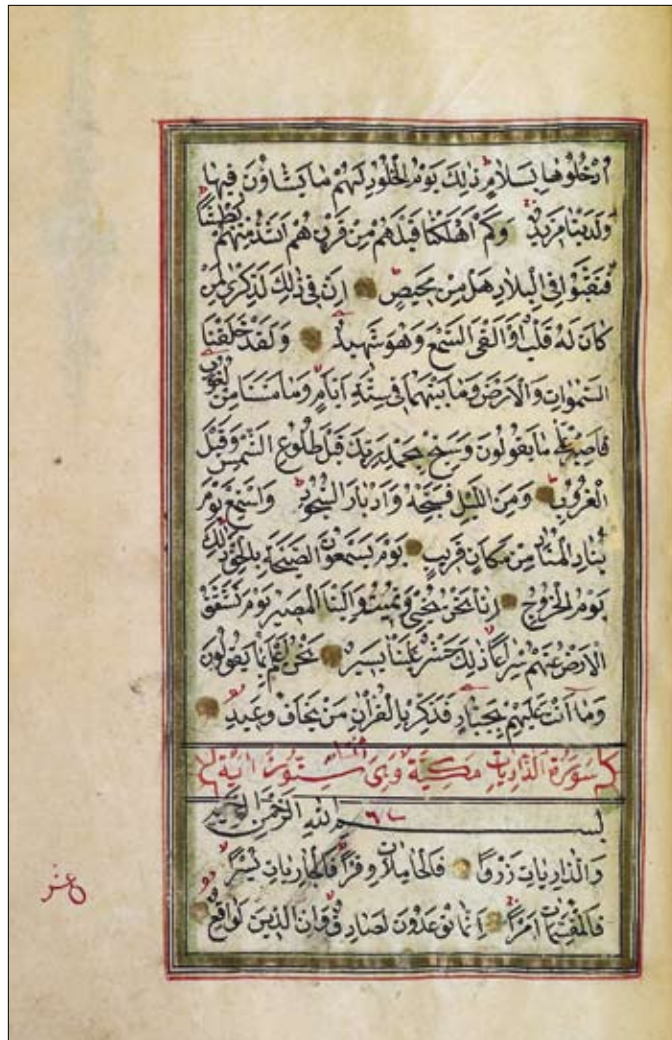 ادْخُلُوهَا بِسَلَامٍ ذٰلِكَ يَوْمُ الْخُلُودِ لَهُمْ مَا يَشَاؤُنَ فِيهَا
وَلَدَيْنَا مَزِيدٌ وَكَمْ اَهْلَكْنَا قَبْلَهُمْ مِنْ قَرْنٍ هُمْ اَشَدُّ مِنْهُمْ بَطْشًا
فَنَقَّبُوا فِي الْبِلَادِ هَلْ مِنْ مَحِيصٍ اِنَّ فِي ذٰلِكَ لَذِكْرٰى لِمَنْ
كَانَ لَهُ قَلْبٌ اَوْ اَلْقَى السَّمْعَ وَهُوَ شَهِيدٌ وَلَقَدْ خَلَقْنَا
السَّمٰوَاتِ وَالْاَرْضَ وَمَا بَيْنَهُمَا فِي سِتَّةِ اَيَّامٍ وَمَا مَسَّنَا مِنْ لُغُوبٍ
فَاصْبِرْ عَلٰى مَا يَقُولُونَ وَسَبِّحْ بِحَمْدِ رَبِّكَ قَبْلَ طُلُوعِ الشَّمْسِ وَقَبْلَ
الْغُرُوبِ وَمِنَ اللَّيْلِ فَسَبِّحْهُ وَاَدْبَارَ السُّجُودِ وَاسْتَمِعْ يَوْمَ
يُنَادِ الْمُنَادِ مِنْ مَكَانٍ قَرِيبٍ يَوْمَ يَسْمَعُونَ الصَّيْحَةَ بِالْحَقِّ ذٰلِكَ
يَوْمُ الْخُرُوجِ اِنَّا نَحْنُ نُحْيِي وَنُمِيتُ وَاِلَيْنَا الْمَصِيرُ يَوْمَ تَشَقَّقُ
الْاَرْضُ عَنْهُمْ سِرَاعًا ذٰلِكَ حَشْرٌ عَلَيْنَا يَسِيرٌ نَحْنُ اَعْلَمُ بِمَا يَقُولُونَ
وَمَا اَنْتَ عَلَيْهِمْ بِجَبَّارٍ فَذَكِّرْ بِالْقُرْاٰنِ مَنْ يَخَافُ وَعِيدِ
سُورَةُ الذَّارِيَاتِ مَكِّيَّةٌ وَهِيَ سِتُّونَ اٰيَةً
بِسْمِ اللهِ الرَّحْمٰنِ الرَّحِيمِ
وَالذَّارِيَاتِ ذَرْوًا فَالْحَامِلَاتِ وِقْرًا فَالْجَارِيَاتِ يُسْرًا
فَالْمُقَسِّمَاتِ اَمْرًا اِنَّمَا تُوعَدُونَ لَصَادِقٌ وَاِنَّ الدِّينَ لَوَاقِعٌ